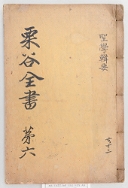 聖學輯要
栗谷全書 第六